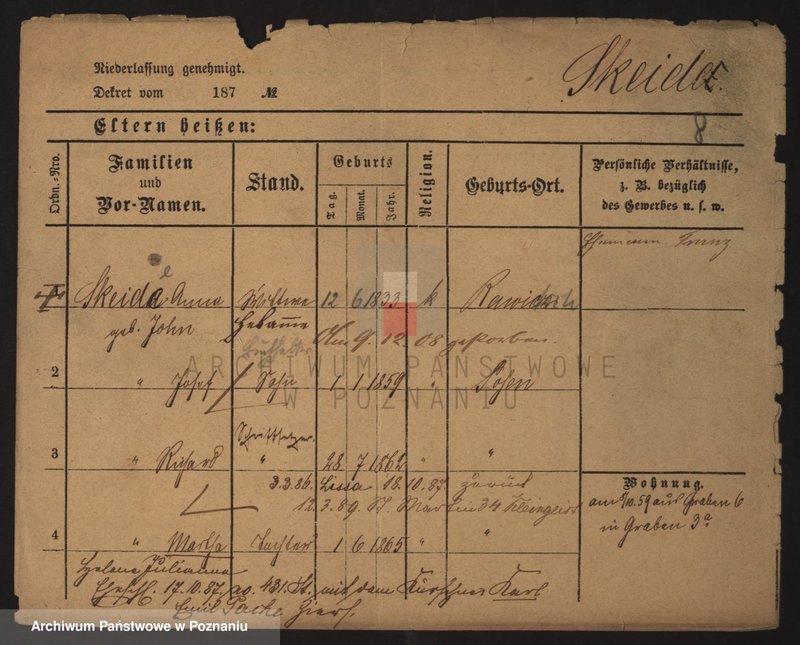 Niederlassung genehmigt.
Dekret vom 187 №
Skeide
8
Eltern heißen:
Ordn.-Nro.
Familien
und
Vor-Namen.
Stand.
Geburts
Tag.
Monat.
Jahr.
Religion.
Geburts-Ort.
Persönliche Verhältnisse,
z. B. bezüglich
des Gewerbes u. s. w.
Ehemann Franz
1 Skeide Anna Wittwe 12 6 1833 k Rawicz
geb. John Hebamme Am 9. 12. 08 gestorben.
2 " Josef Sohn 1 1 1859 " Posen
Schriftsetzer
3 " Richard " 28 7 1862 " "
3.3.86. Lissa 18.10.87. zurück
12.3.89. St. Martin 34
Wohnung.
am 5/10.59 aus Graben 6
in Graben 3a
4 " Martha Tochter 1 6 1865 " "
Helene Julianna
Ehesch. 17.10.87, no. 431. St. mit dem Kürschner Karl
Emil
ARCHIWUM PAŃSTWOWE
W POZNANIU
Archiwum Państwowe w Poznaniu